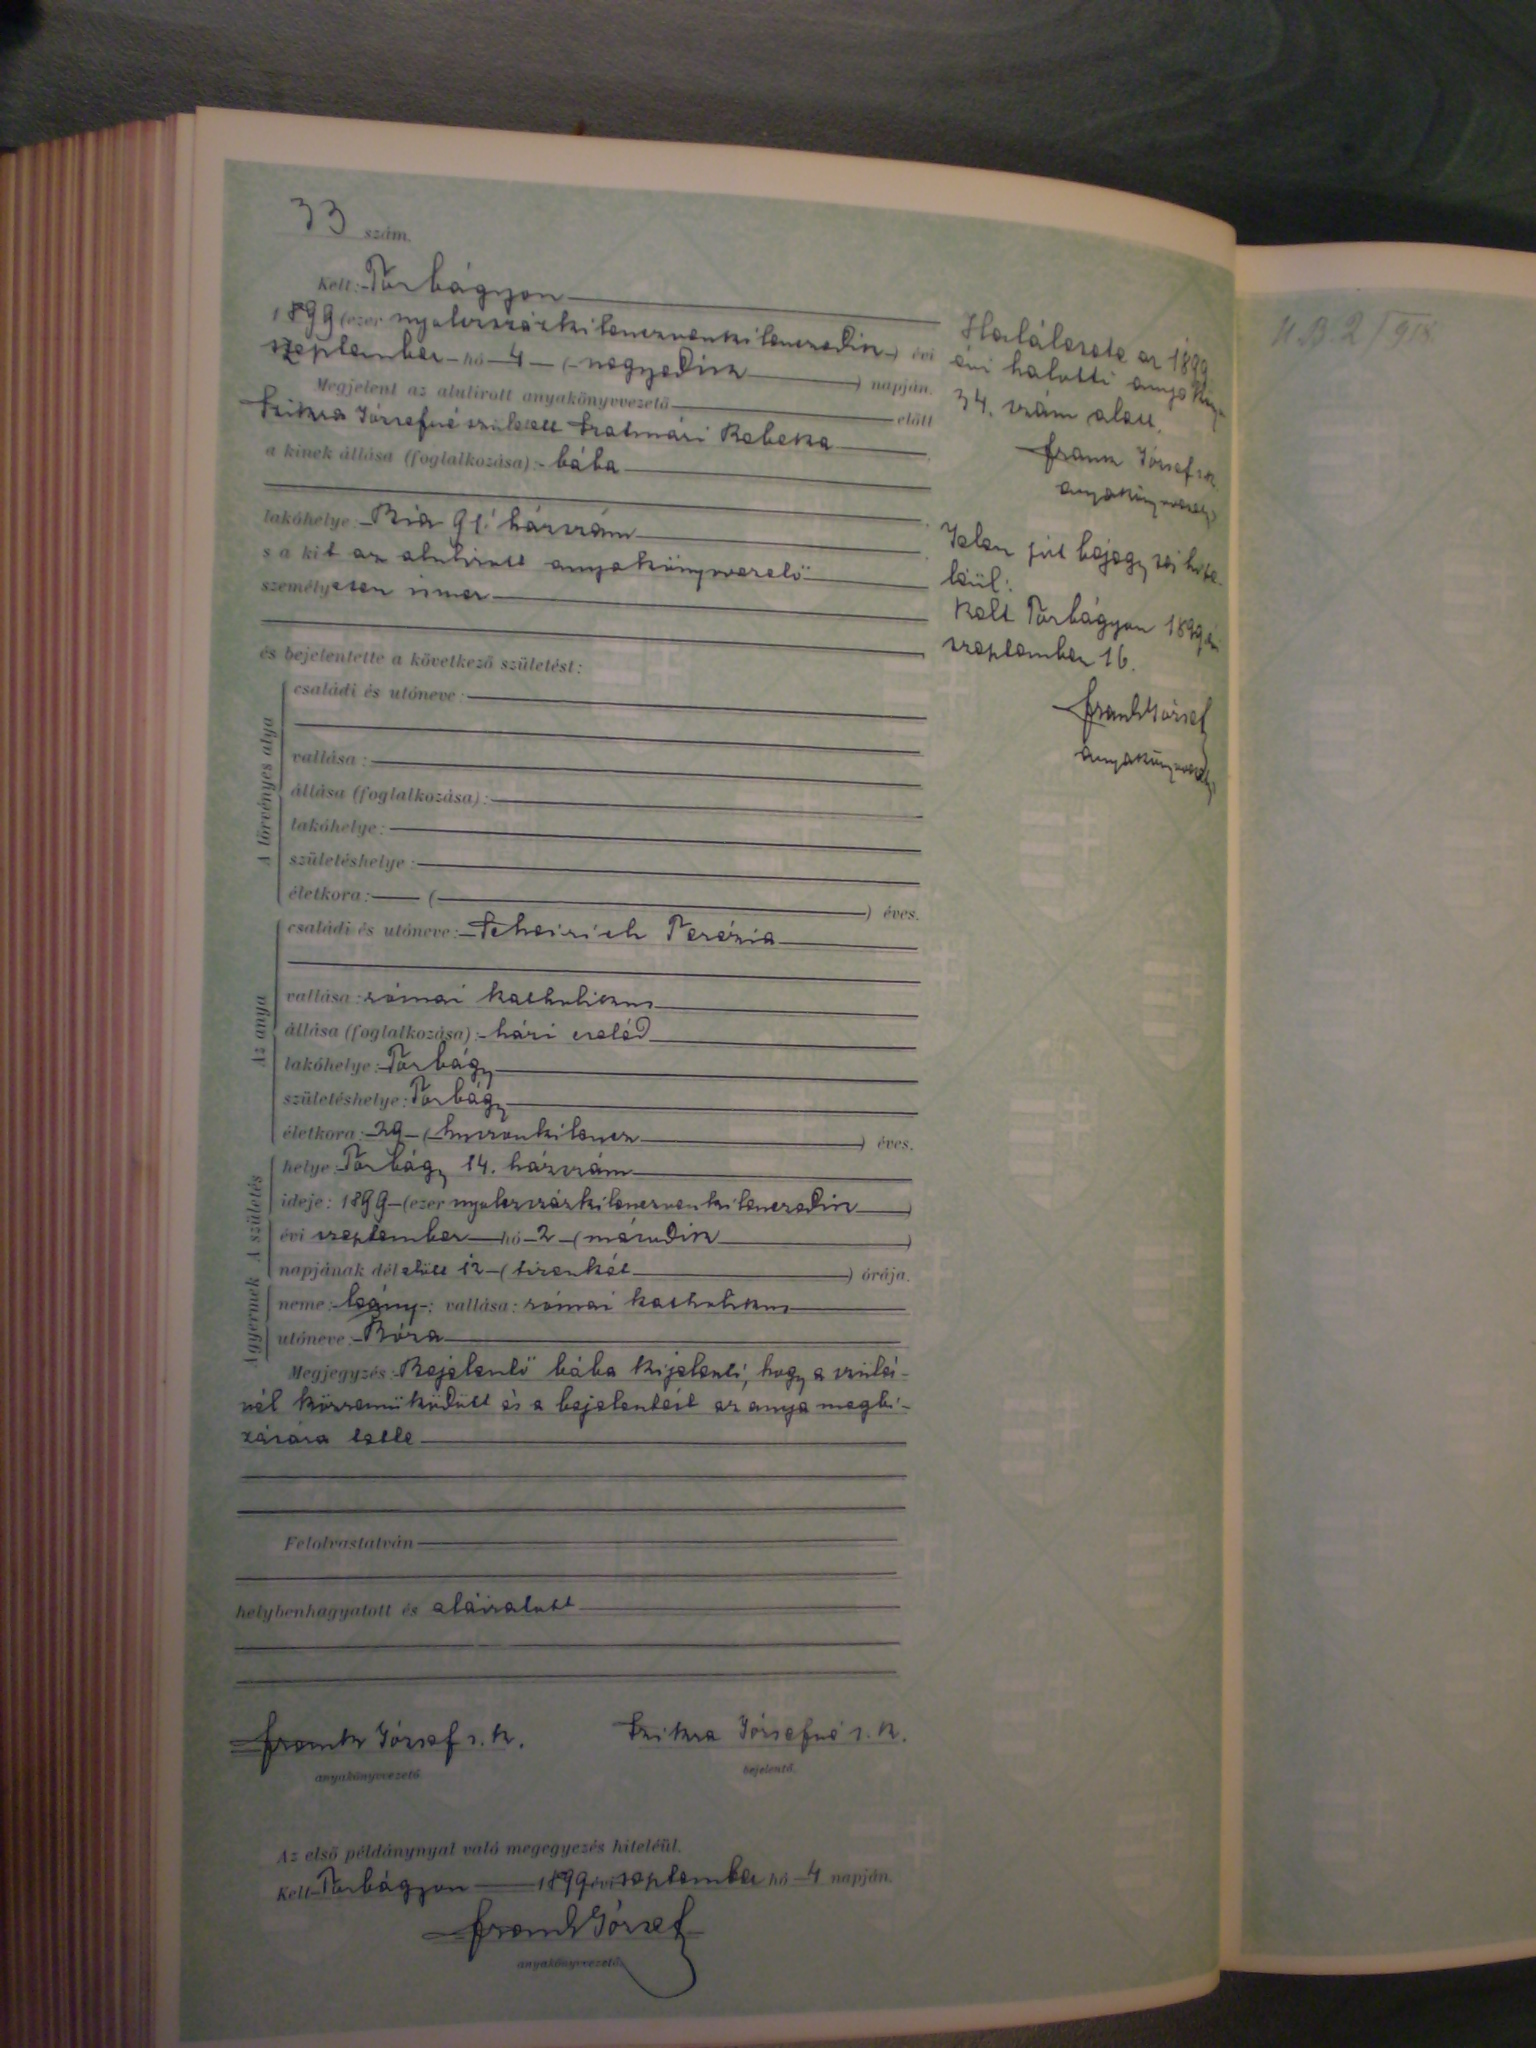 33 szám.
Kelt: Torbágyon
1899 (ezer nyolczszázkilenczvenkilenczedik) évi
szeptember hó 4 (negyedik) napján.
Megjelent az alulirott anyakönyvvezető előtt
Szikra Józsefné született Szatmári Rebeka
a kinek állása (foglalkozása): bába
lakóhelye: Bia 91 házszám
s a kit az alulirott anyakönyvvezető
személyesen ismer
és bejelentette a következő születést:
A törvényes atya
családi és utóneve:
vallása:
állása (foglalkozása):
lakóhelye:
születéshelye:
életkora: ( ) éves.
Az anya
családi és utóneve: Scheirich Terézia
vallása: római katholikus
állása (foglalkozása): házi cseléd
lakóhelye: Torbágy
születéshelye: Torbágy
életkora: 29 (huszonkilencz) éves.
A születés
helye: Torbágy 14. házszám
ideje: 1899 (ezer nyolczszázkilenczvenkilenczedik)
évi szeptember hó 2 (második)
napjának délelőtt 12 (tizenkét) órája.
A gyermek
neme: leány; vallása: római katholikus
utóneve: Róza
Megjegyzés: Bejelentő bába kijelenti, hogy a szülés-
nél közreműködött és a bejelentést az anya megbi-
zására tette
Felolvastatván
helybenhagyatott és aláiratott
Frank József s. k.
anyakönyvvezető.
Szikra Józsefné s. k.
bejelentő.
Az első példánynyal való megegyezés hiteléül.
Kelt Torbágyon 1899 évi szeptember hó 4 napján.
Frank József
anyakönyvvezető.
Halálesete az 1899
évi halotti anyakönyv
34. szám alatt.
Frank József s. k.
anyakönyvvezető
Jelen jut bejegyzés hite-
léül:
Kelt Torbágyon 1899 évi
szeptember 16.
Frank József
anyakönyvvezető
M. B. 2/918